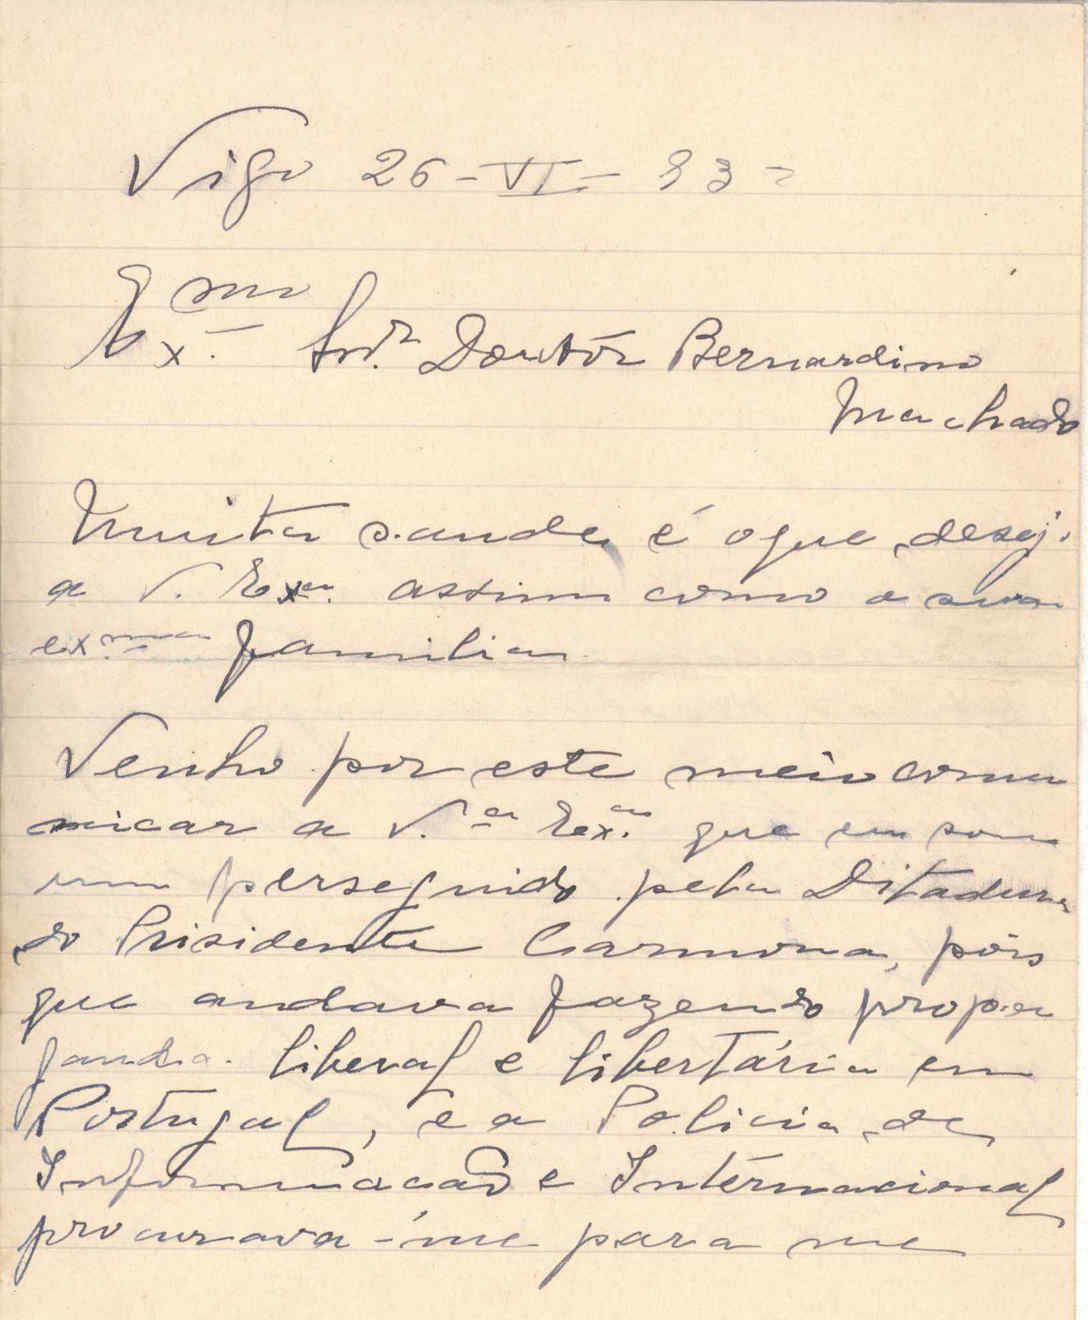 Vigo 26-VI-933
Ex.mo Snr. Doutôr Bernardino
Machado
Muita saude é o que desej.
a V. Exa. assim como a sua
ex.ma familia
Venho por este meio comu
nicar a V.a Ex.a que eu sou
um perseguido pela Ditadura
do Prisidente Carmona, póis
que andava fazendo propa
ganda liberal e libertária em
Portugal, e a Policia de
Informacaõ e Intérnacional
procurava-me para me